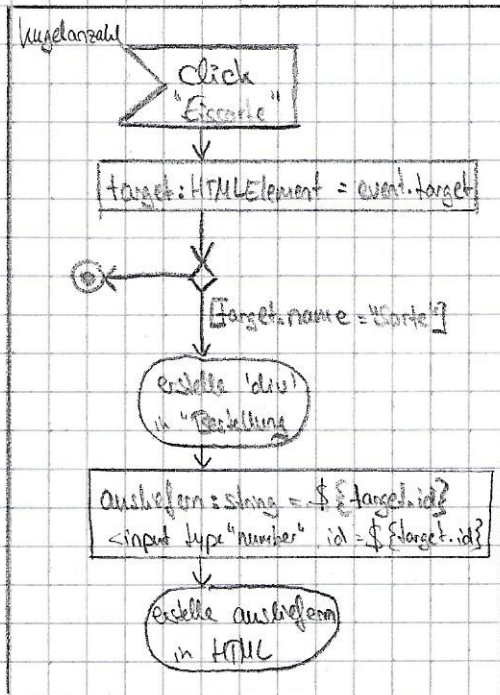 kugelanzahl
click
"Eissorte"
target: HTMLElement = event.target
[target.name = "Sorte"]
erstelle 'div'
in "Bestellung
ausliefern: string = ${target.id}
<input type"number" id=${target.id}
erstelle ausliefern
in HTML